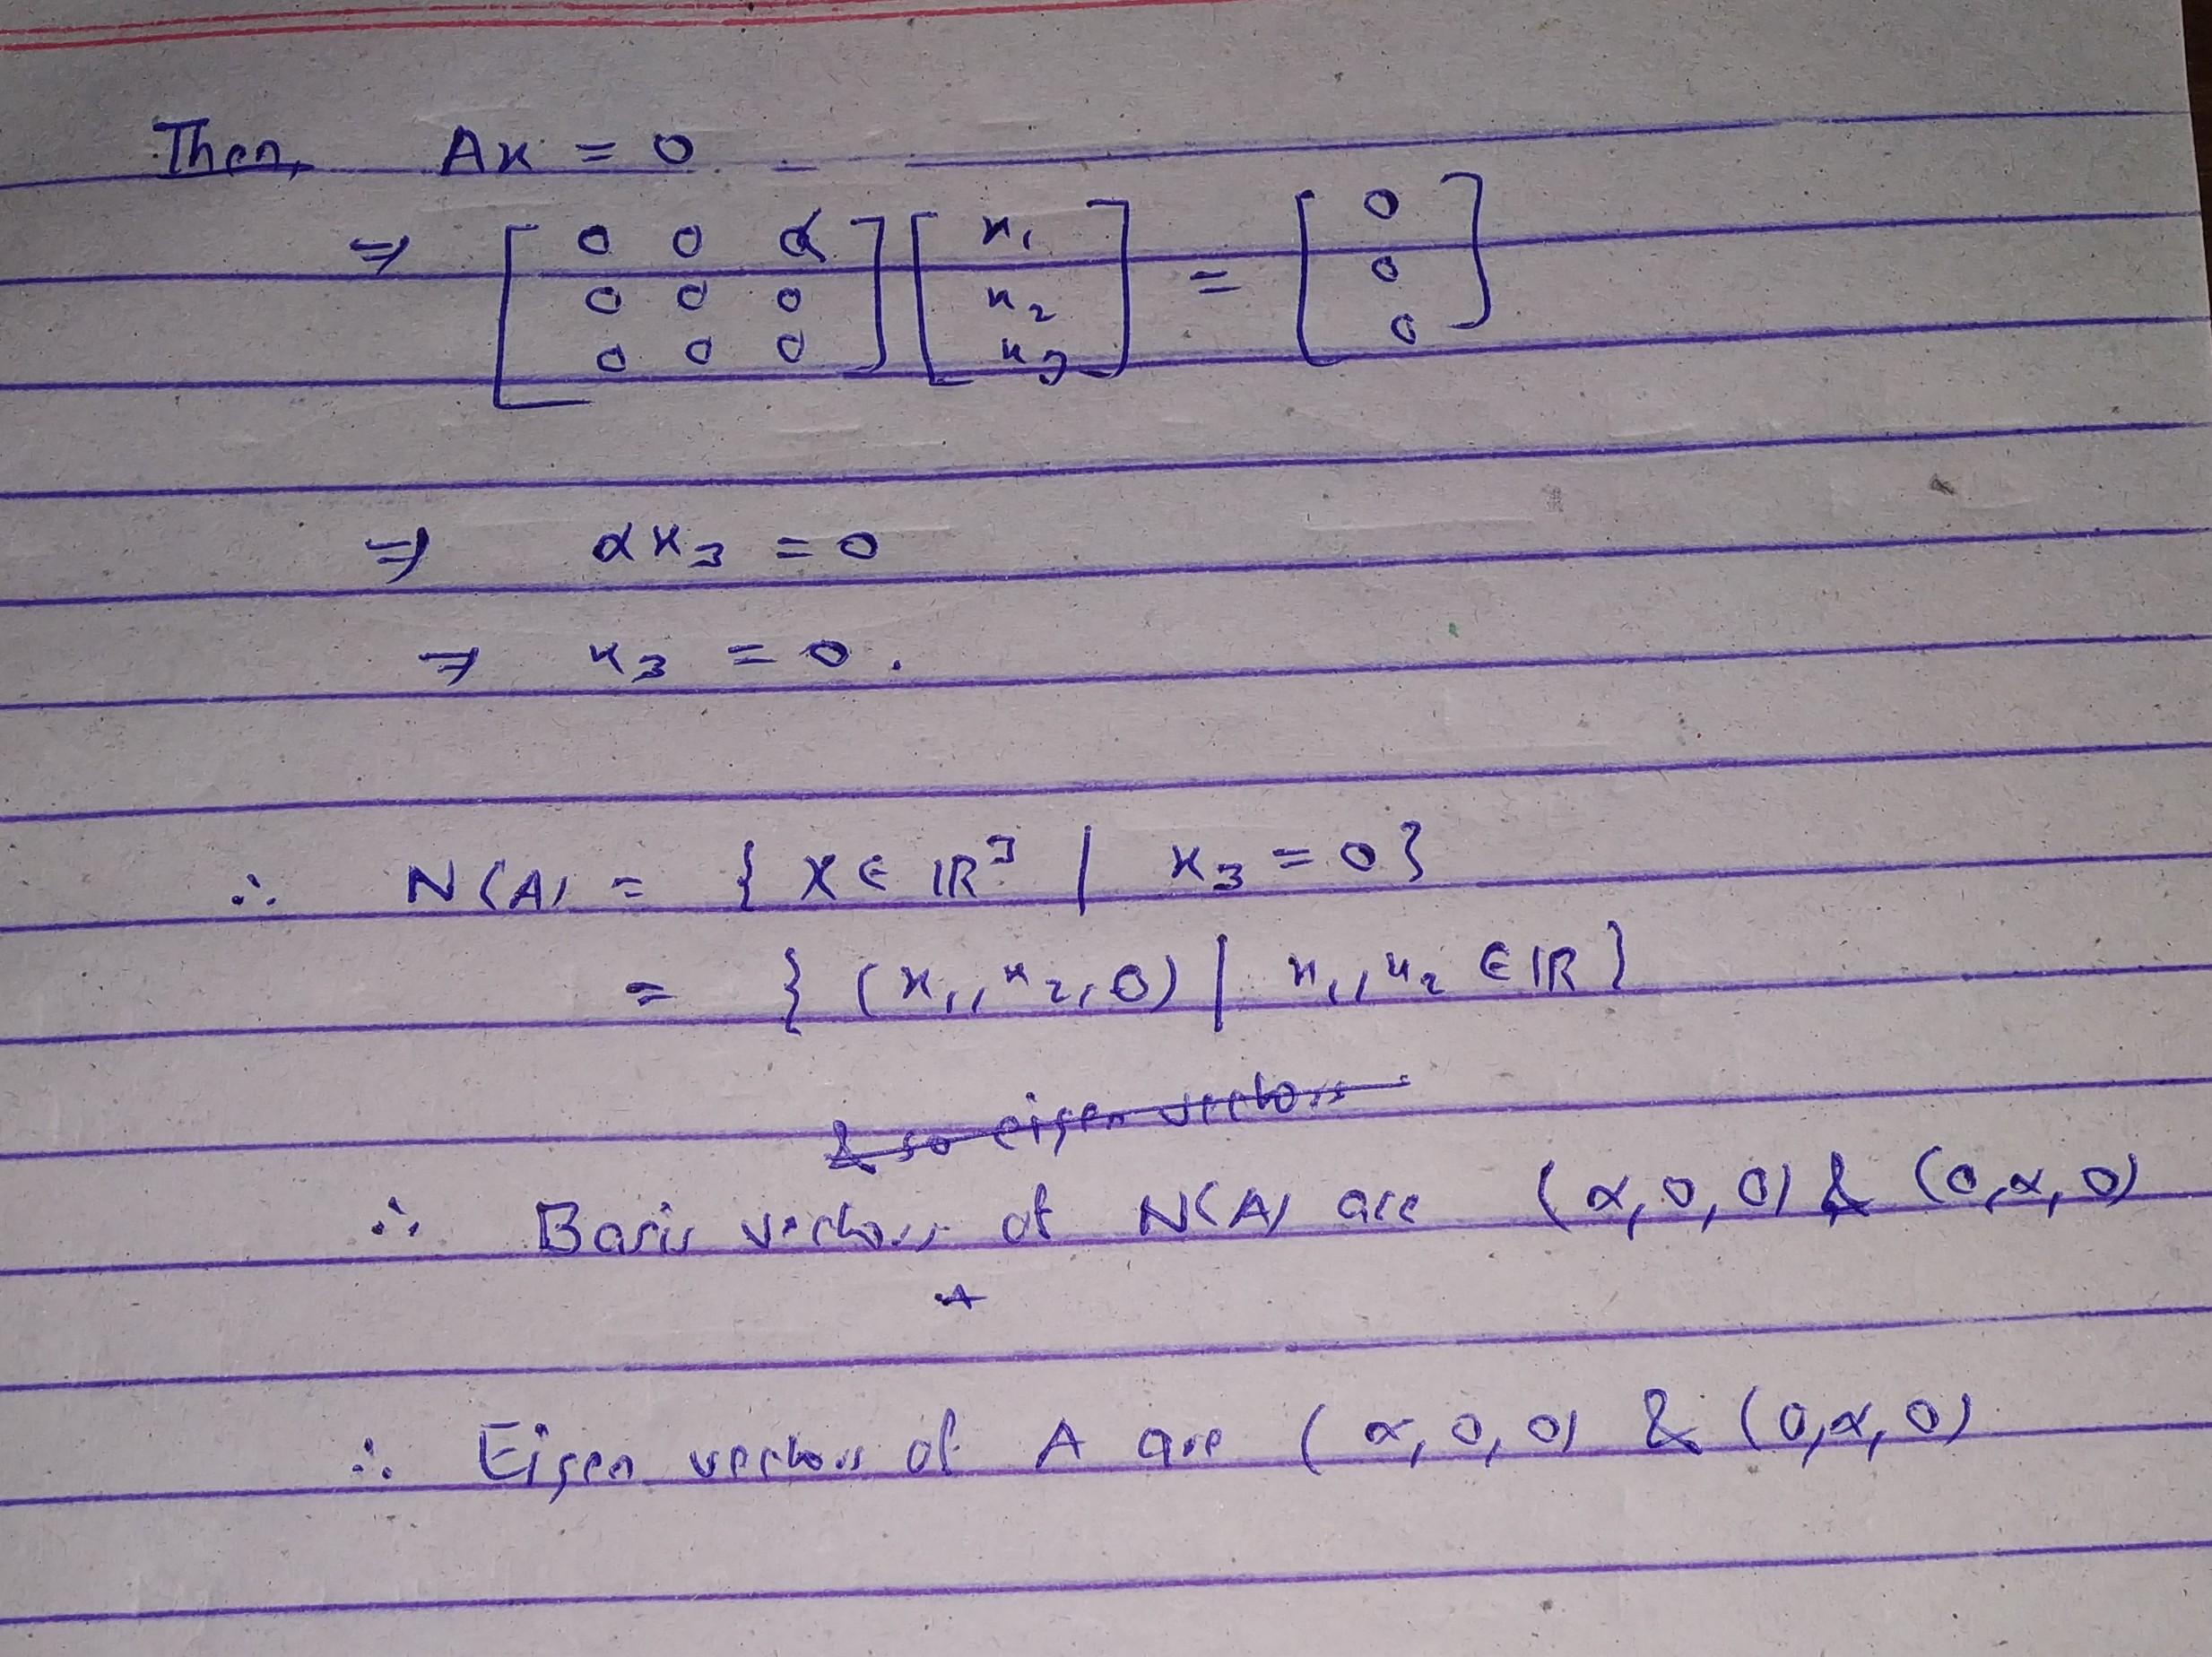 Then, Ax = 0
⇒ [ 0 0 α ; 0 0 0 ; 0 0 0 ] [ x₁ ; x₂ ; x₃ ] = [ 0 ; 0 ; 0 ]
⇒ αx₃ = 0
⇒ x₃ = 0.
∴ N(A) = { X ∈ ℝ³ | x₃ = 0 }
= { (x₁, x₂, 0) | x₁, x₂ ∈ ℝ }
& so eigen vectors
∴ Basis vectors of N(A) are (α, 0, 0) & (0, α, 0)
∴ Eigen vectors of A are (α, 0, 0) & (0, α, 0)